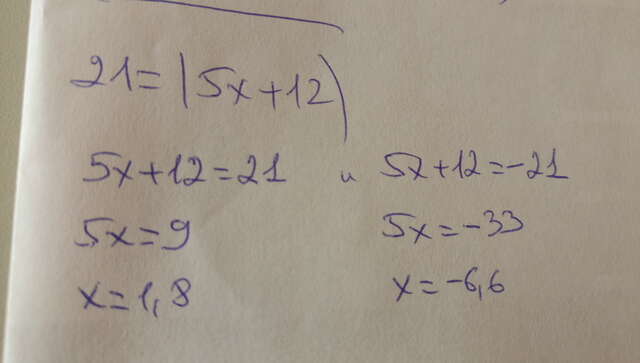 21=|5x+12|
5x+12=21 и 5x+12=-21
5x=9 5x=-33
x=1,8 x=-6,6